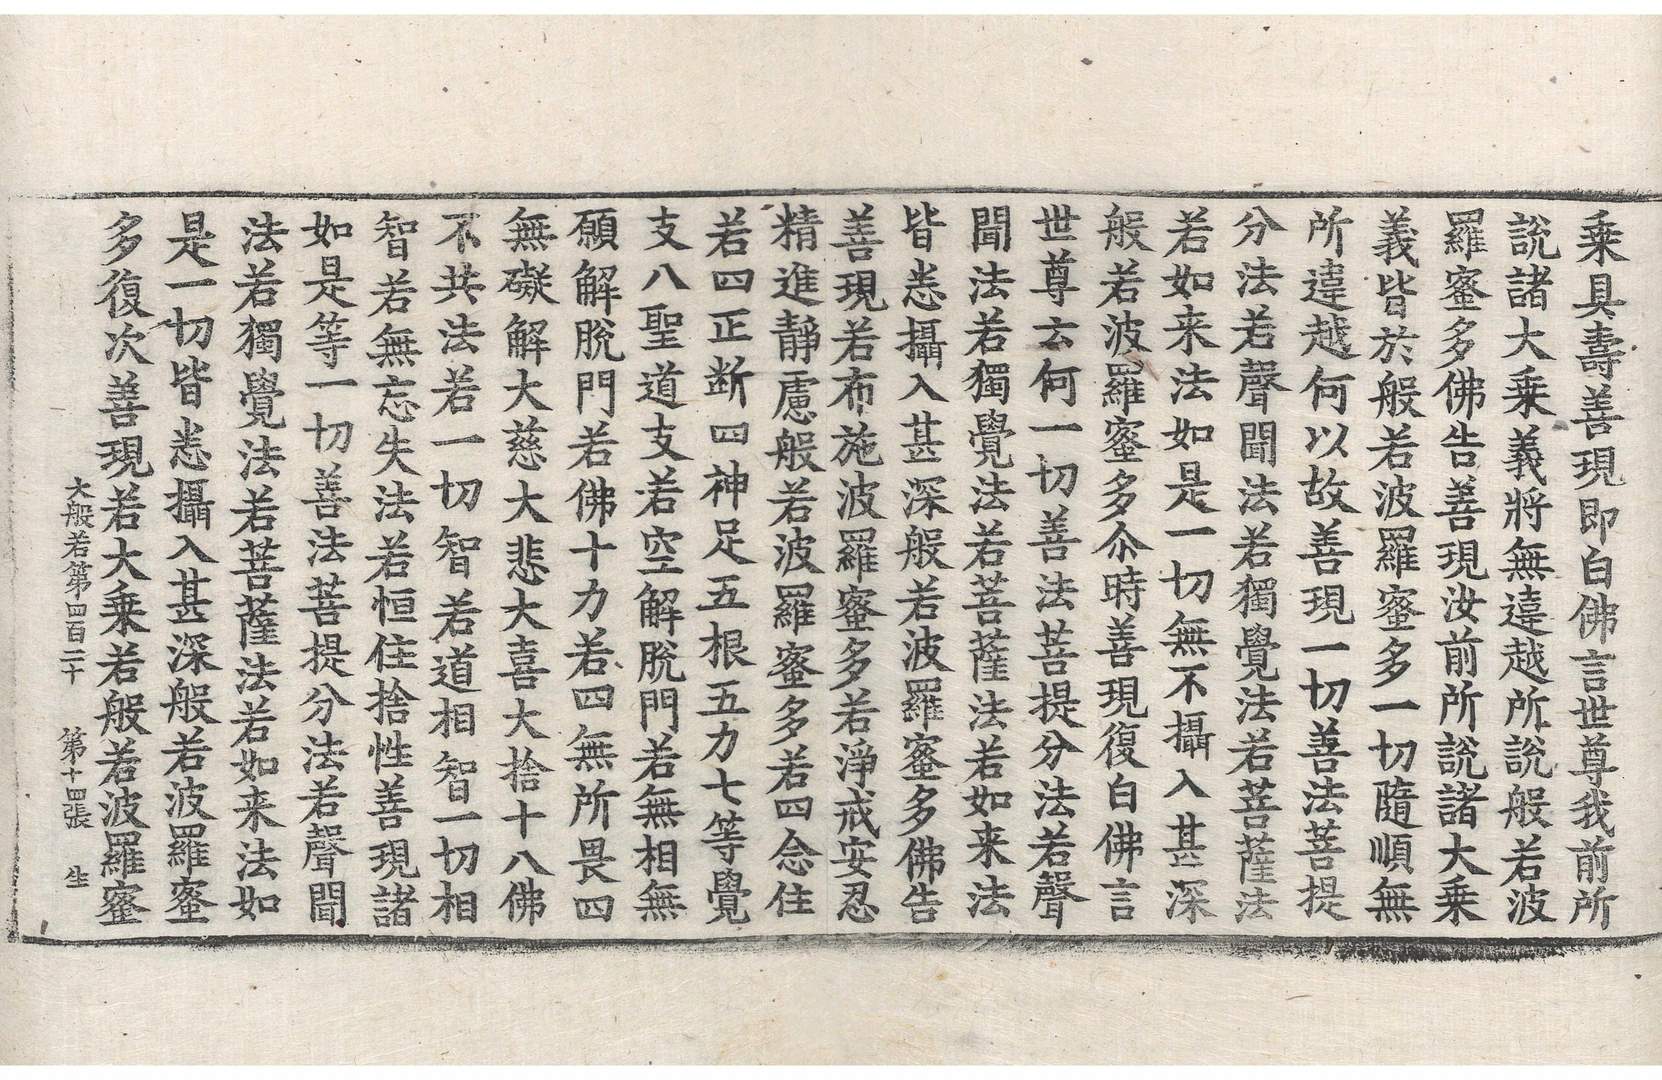 乘具壽善現即白佛言世尊我前所
說諸大乘義將無違越所說般若波
羅蜜多佛告善現汝前所說諸大乘
義皆於般若波羅蜜多一切隨順無
所違越何以故善現一切善法菩提
分法若聲聞法若獨覺法若菩薩法
若如来法如是一切無不攝入甚深
般若波羅蜜多尒時善現復白佛言
世尊云何一切善法菩提分法若聲
聞法若獨覺法若菩薩法若如来法
皆悉攝入甚深般若波羅蜜多佛告
善現若布施波羅蜜多若淨戒安忍
精進靜慮般若波羅蜜多若四念住
若四正断四神足五根五力七等覺
支八聖道支若空解脫門若無相無
願解脫門若佛十力若四無所畏四
無礙解大慈大悲大喜大捨十八佛
不共法若一切智若道相智一切相
智若無忘失法若恒住捨性善現諸
如是等一切善法菩提分法若聲聞
法若獨覺法若菩薩法若如来法如
是一切皆悉攝入甚深般若波羅蜜
多復次善現若大乘若般若波羅蜜
大般若第四百二十 第十四張 生